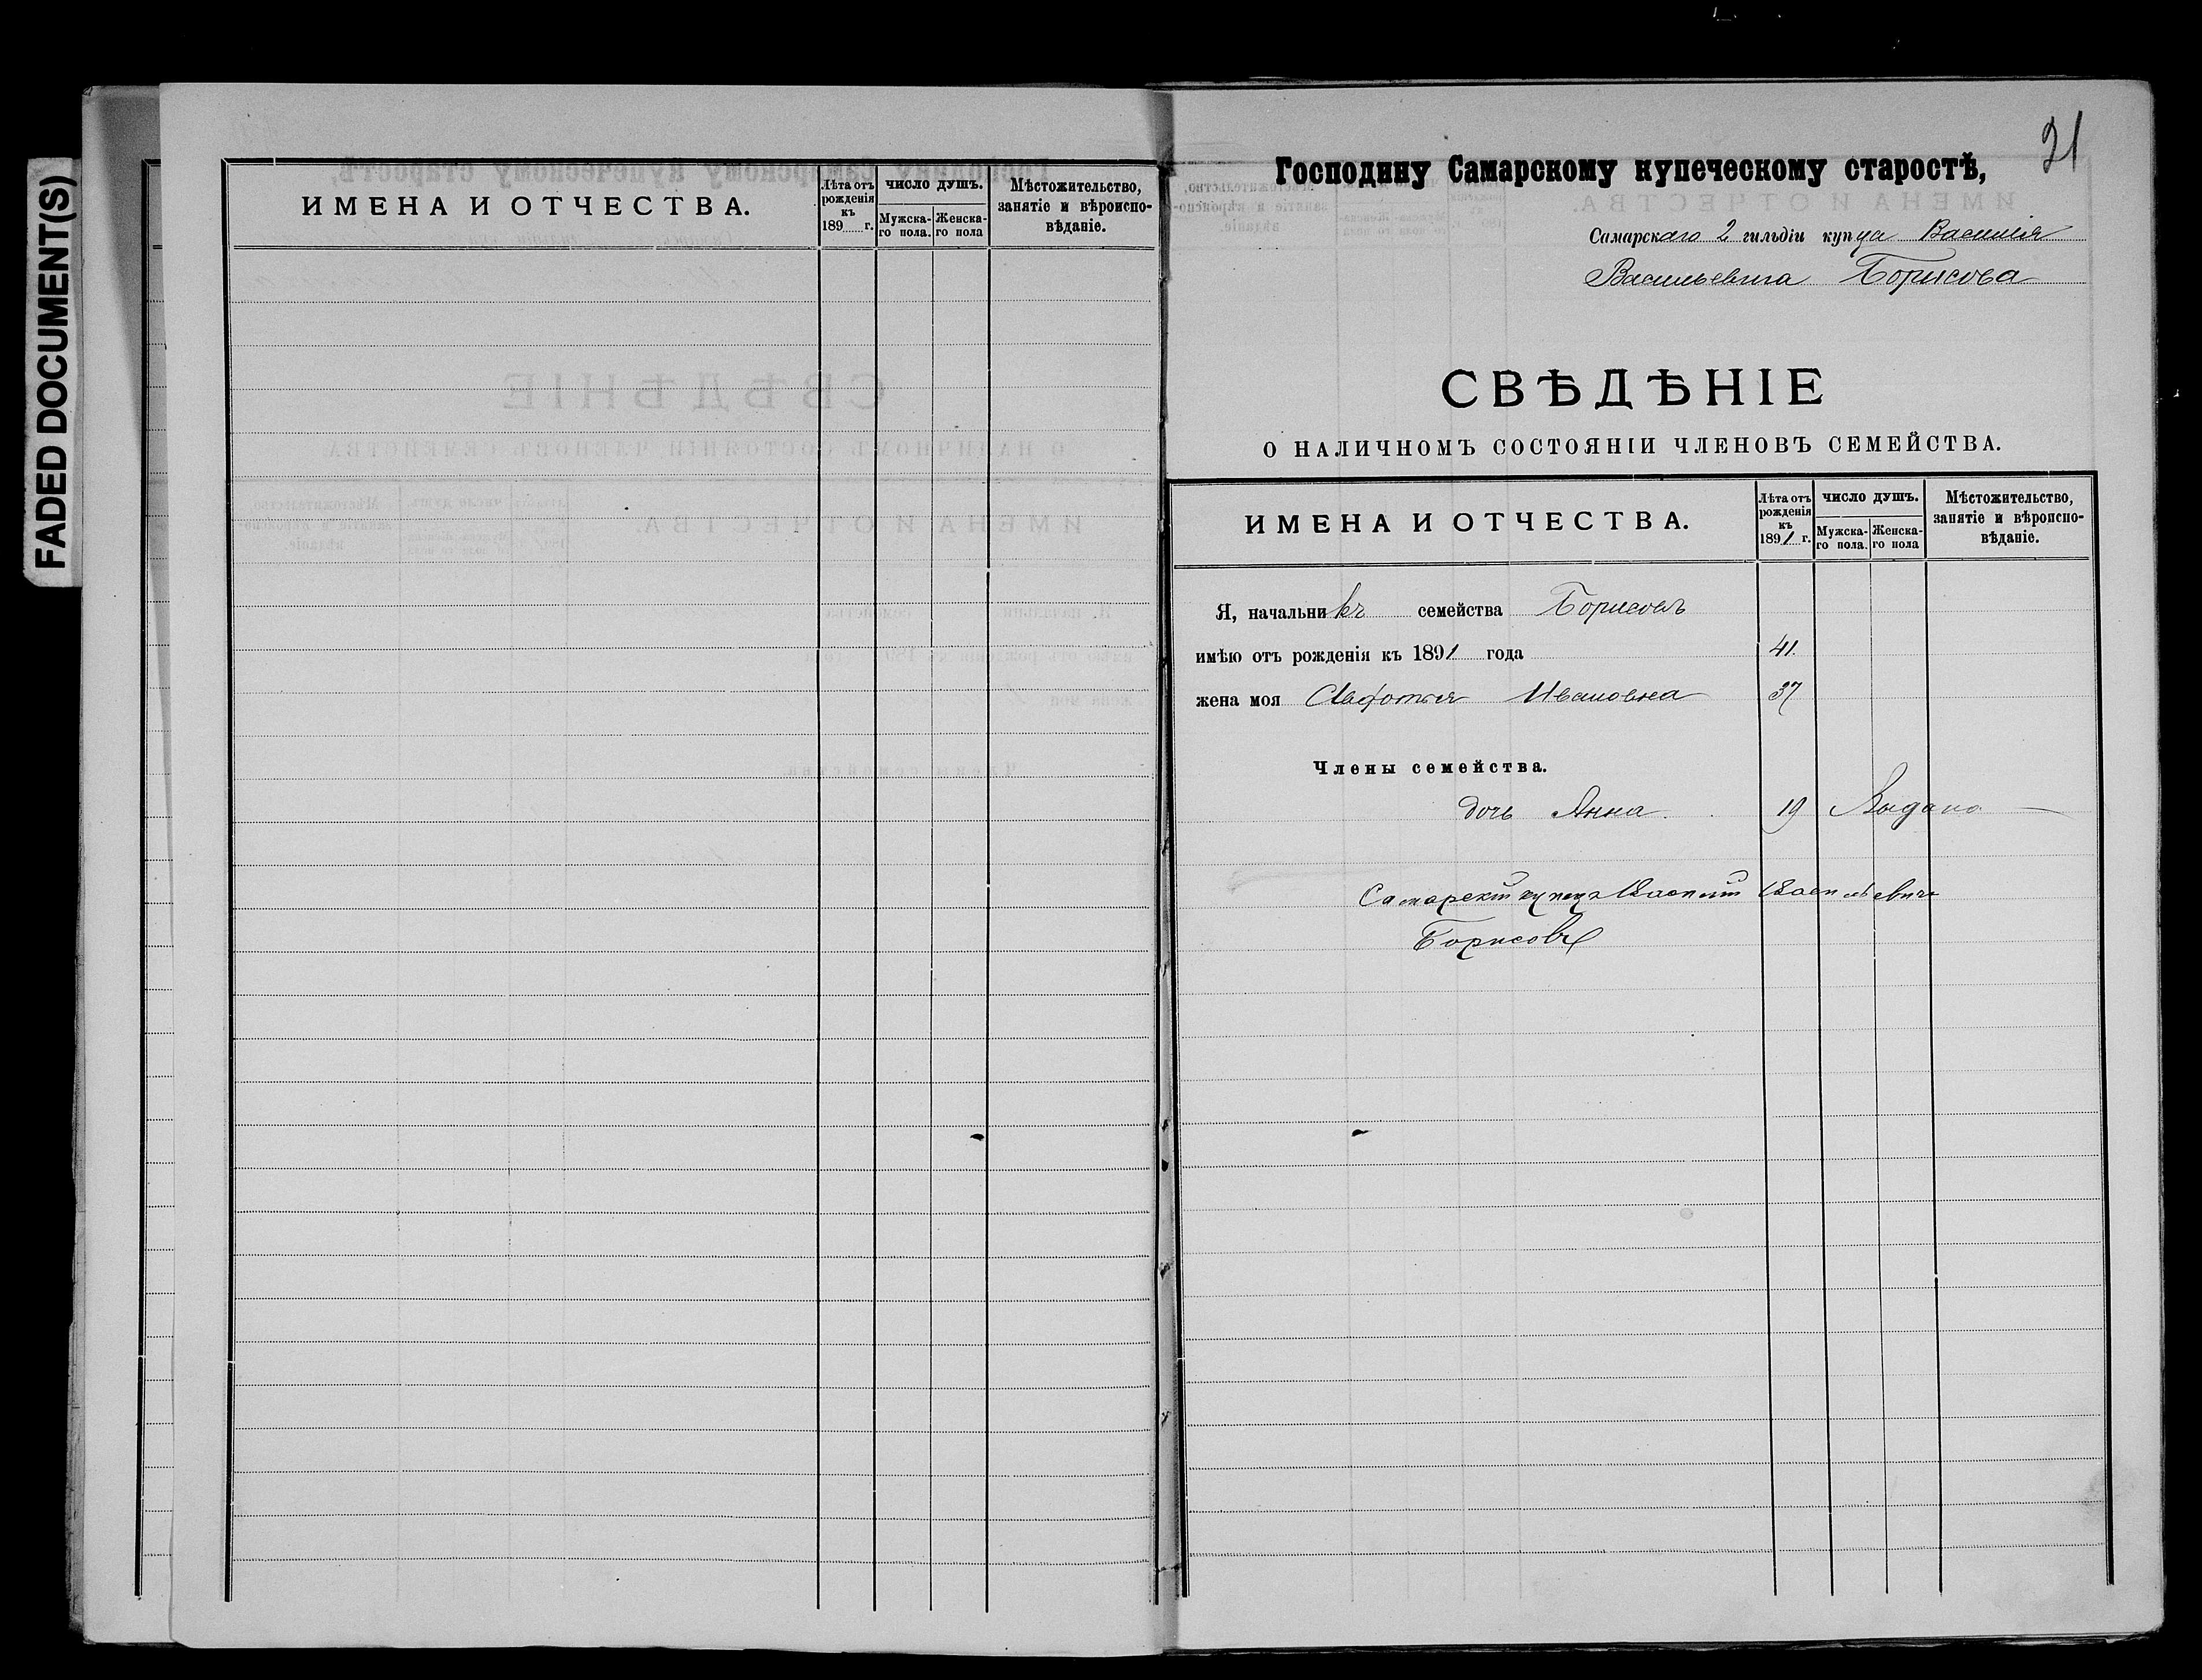 FADED DOCUMENT(S)
ИМЕНА И ОТЧЕСТВА.
Лѣта отъ рожденія къ 189 г.
ЧИСЛО ДУШЪ.
Мужска-го пола.
Женска-го пола
Мѣстожительство, занятіе и вѣроиспо-вѣданіе.
21
Господину Самарскому купеческому старостѣ,
Самарскаго 2 гильдіи купца Василія
Васильевича Борисова
СВѢДѢНІЕ
О НАЛИЧНОМЪ СОСТОЯНІИ ЧЛЕНОВЪ СЕМЕЙСТВА.
ИМЕНА И ОТЧЕСТВА.
Лѣта отъ рожденія къ 1891 г.
ЧИСЛО ДУШЪ.
Мужска-го пола.
Женска-го пола
Мѣстожительство, занятіе и вѣроиспо-вѣданіе.
Я, начальникъ семейства Борисовъ
имѣю отъ рожденія къ 1891 года 41.
жена моя Авдотья Ивановна 37
Члены семейства.
дочь Анна. 19 Выдано
Самарскій купецъ Василий Васильевичъ
Борисовъ